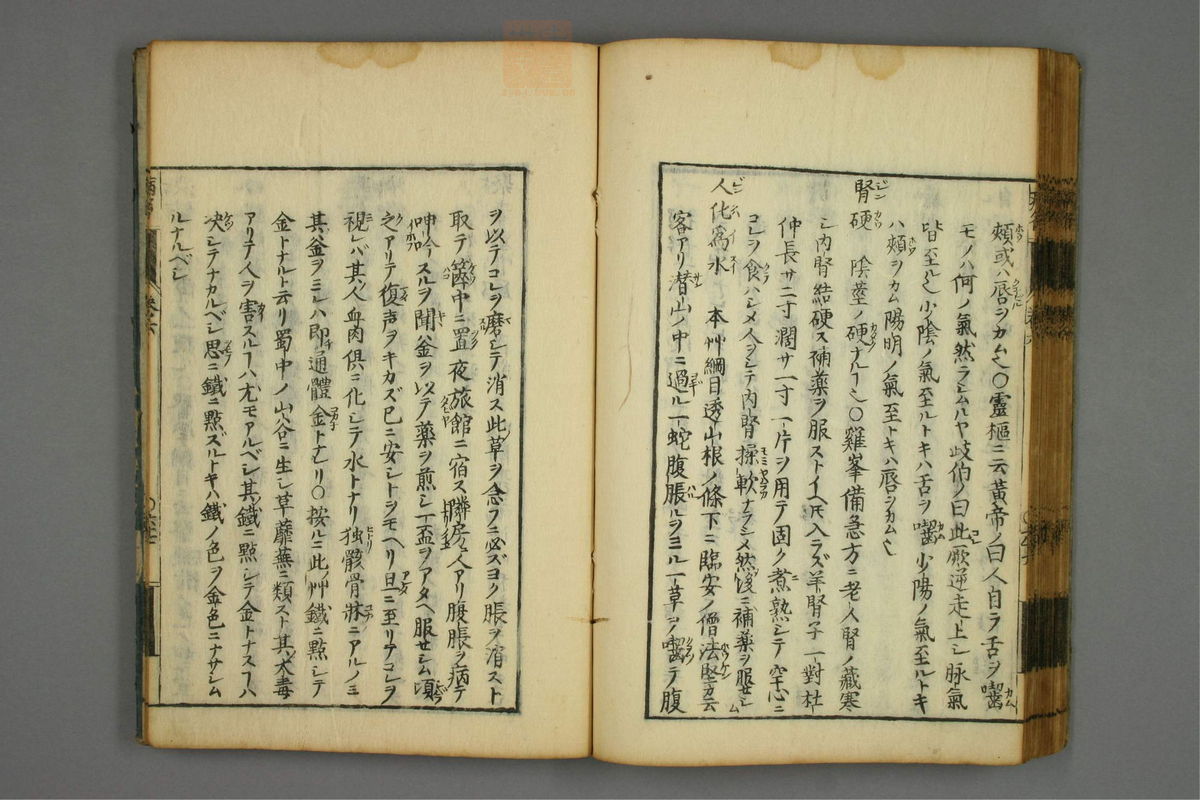 頰或ハ唇ヲカム也〇靈樞ニ云黃帝ノ曰人自ラ舌ヲ嚙
モノハ何ノ氣然ラシムルヤ岐伯ノ曰此厥逆走上シ脉氣
皆至ル也少陰ノ氣至ルトキハ舌ヲ嚙少陽ノ氣至ルトキ
ハ頰ヲカム陽明ノ氣至トキハ唇ヲカム也
腎硬 陰莖ノ硬ナルヿ也〇雞峯備急方ニ老人腎ノ藏寒
シ内腎結硬ス補藥ヲ服ストイヘ𪜈入ラズ羊腎子一對杜
仲長サ二寸濶サ一寸一片ヲ用テ固ク煮熟シテ空心ニ
コレヲ食ハシメ人ヲシテ内腎操軟ナラシメ然後ニ補藥ヲ服セシム
人化爲水 本艸綱目透山根ノ條下ニ臨安ノ僧法堅カ云
客アリ潜山ノ中ニ過ル一蛇腹脹ルヲミル一草ヲ嚙テ腹
ヲ以テコレヲ磨シテ消ス此草ヲ念フニ必ズヨク脹ヲ消スト
取テ篋中ニ置一夜旅館ニ宿ス隣房ニ人アリ腹脹ヲ病テ
呻吟スルヲ聞釜ヲ以テ藥ヲ煎シ一盃ヲアタヘ服セシム頃
之アリテ復声ヲキカズ已ニ安シトヲモヘリ旦ニ至リテコレヲ
視レバ其ノ人血肉俱ニ化シテ水トナリ独骸骨牀ニアルノミ
其釜ヲミレハ即通體金トナレリ〇按ルニ此ノ艸鐵ニ點シテ
金トナルト云リ蜀中ノ山谷ニ生シ草蘼蕪ニ類ス其ノ大毒
アリテ人ヲ害スルヿハ尤モアルベシ其鐵ニ點シテ金トナスヿハ
决シテナカルベシ思ニ鐵ニ點ズルトキハ鐵ノ色ヲ金色ニナサシム
ルナルベシ